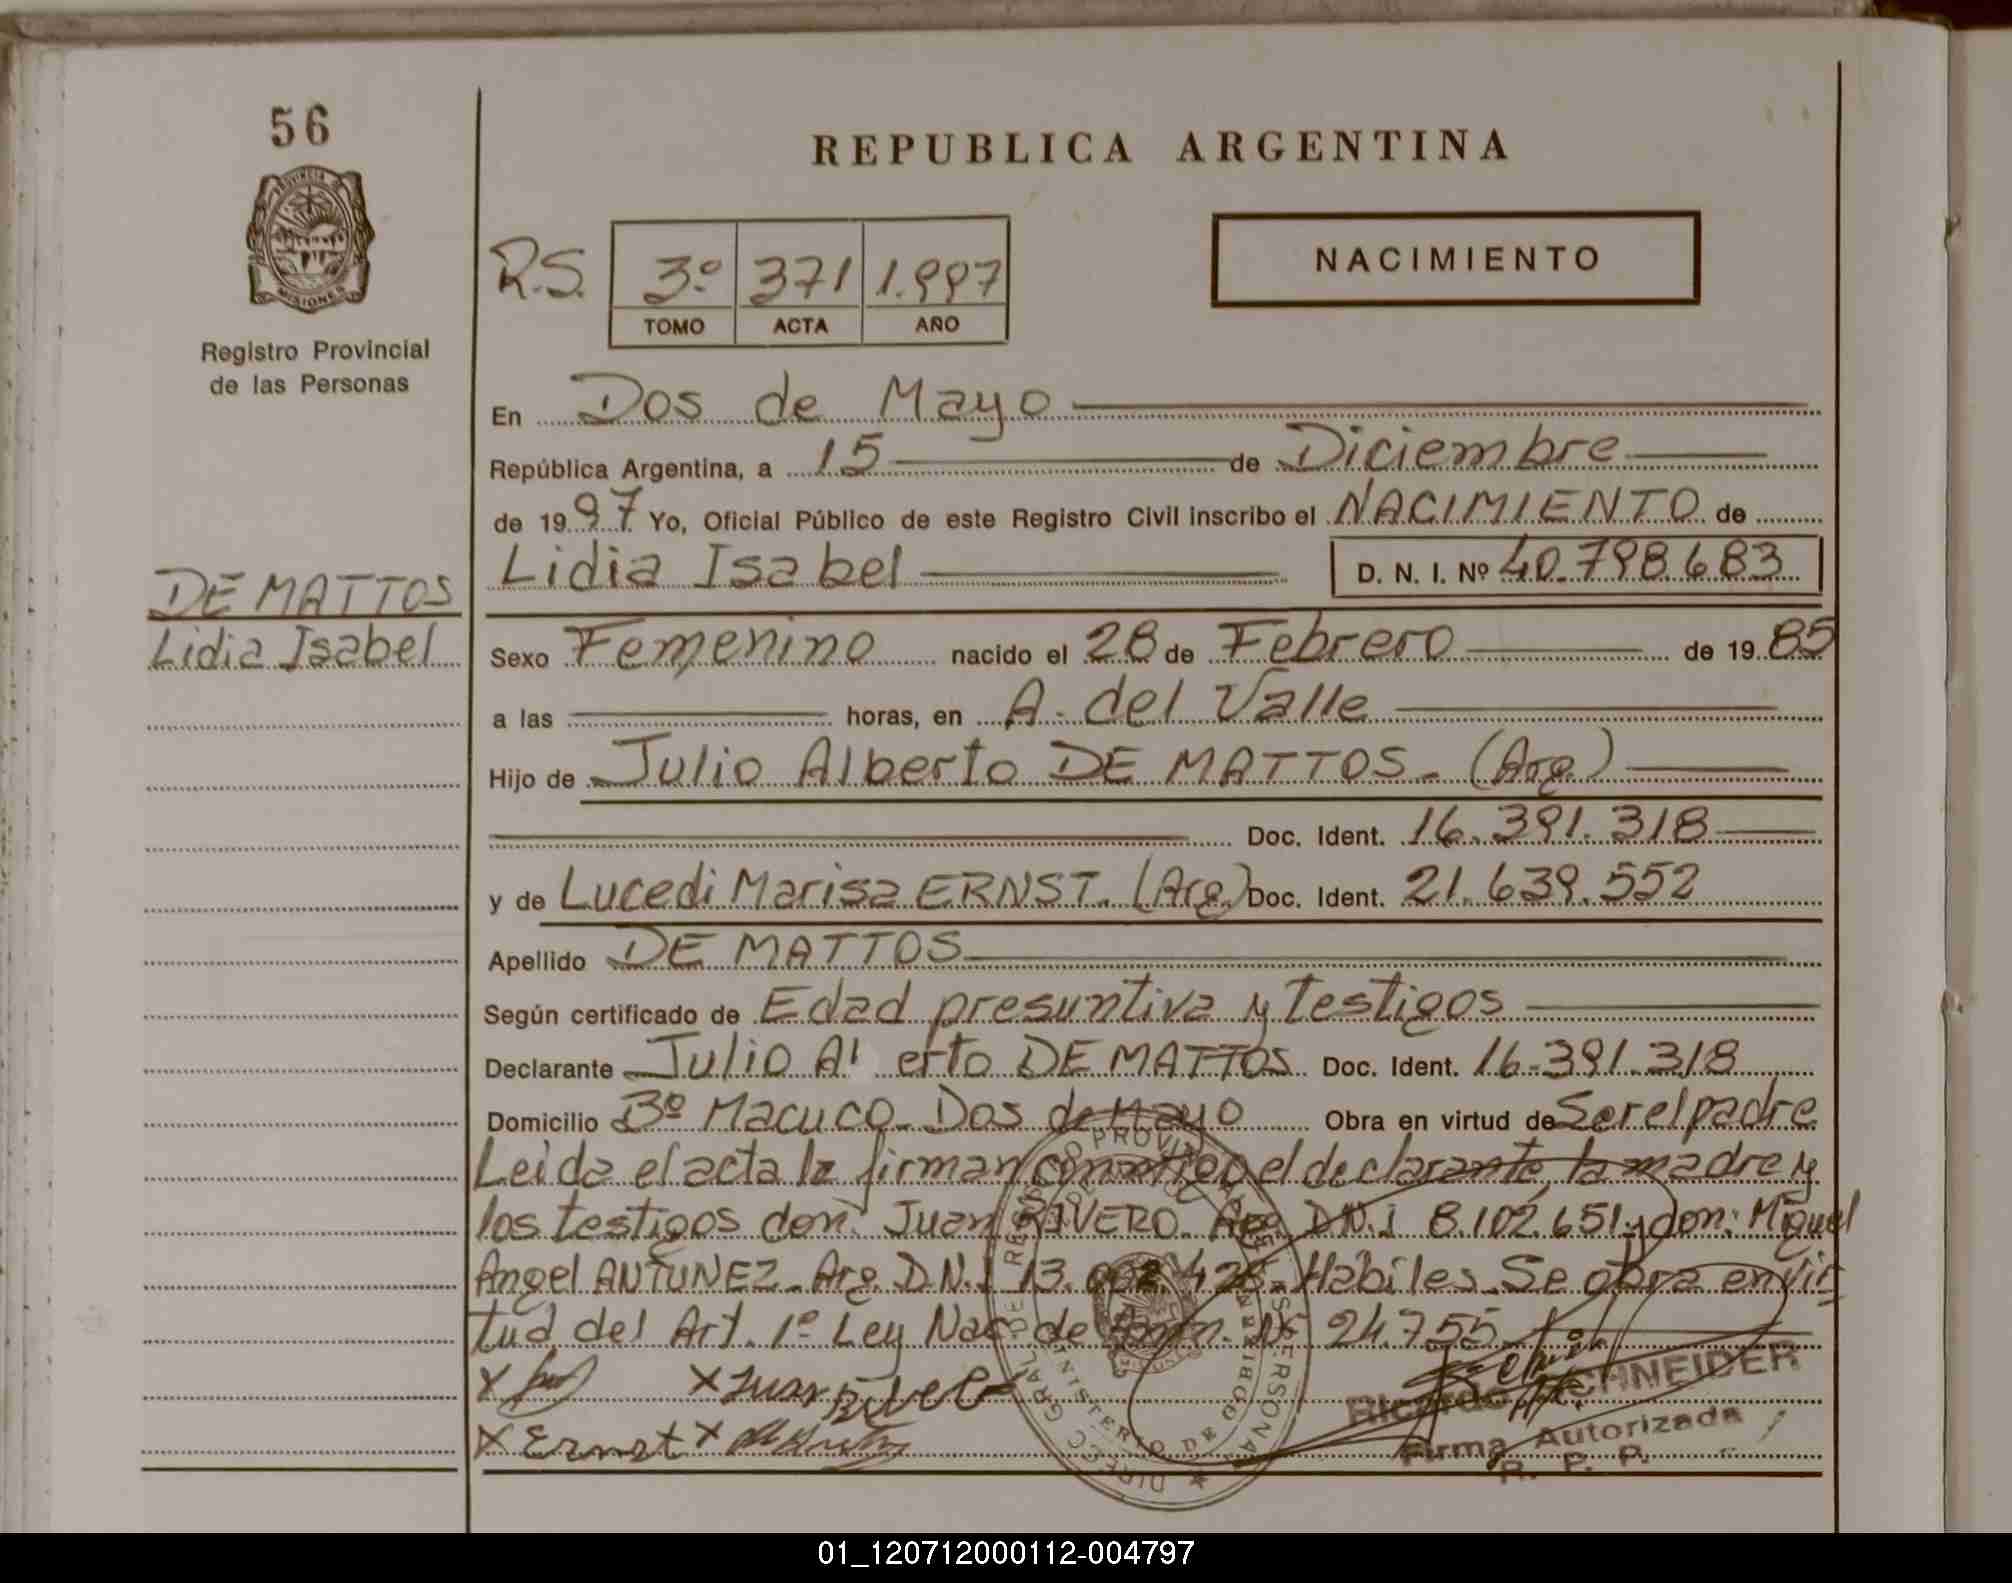 56
PROVINCIA DE
MISIONES
Registro Provincial
de las Personas
DE MATTOS
Lidia Isabel
REPUBLICA ARGENTINA
R.S. 3º 371 1.997
TOMO ACTA AÑO
NACIMIENTO
En Dos de Mayo
República Argentina, a 15 de Diciembre
de 1997 Yo, Oficial Público de este Registro Civil inscribo el NACIMIENTO de
Lidia Isabel D. N. I. Nº 40.798.683
Sexo Femenino nacido el 28 de Febrero de 1985
a las horas, en A. del Valle
Hijo de Julio Alberto DE MATTOS. (Arg.)
Doc. Ident. 16.391.318
y de Lucedi Marisa ERNST. (Arg.) Doc. Ident. 21.639.552
Apellido DE MATTOS
Según certificado de Edad presuntiva y testigos
Declarante Julio Al erto DE MATTOS Doc. Ident. 16.391.318
Domicilio Bº Macuco. Dos de Mayo Obra en virtud de Ser el padre
Leida el acta la firman conmigo el declarante, la madre y
los testigos don: Juan RIVERO. Arg. D.N.I 8.102.651 y don: Miguel
Angel ANTUNEZ. Arg. D.N.I 13. Habiles. Se obra en vir
tud del Art. 1º Ley Nac. de Amn. Nº 24.755
X X Juan
X Ernst X
Ricardo SCHNEIDER
Firma Autorizada
R. P. P.
DIRECC. GRAL. DE REGISTRO PROVINCIAL DE LAS PERSONAS
MINISTERIO DE GOBIERNO
01_120712000112-004797